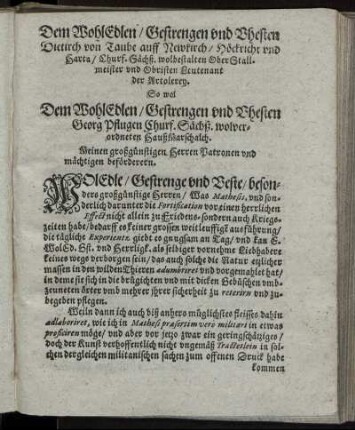 Dem WohlEdlen / Gestrengen vnd Vhesten
Dietrich von Taube auff Newkirch / Höckricht vnd
Harta / Churf. Sächß. wolbestalten Ober Stall-
meister vnd Obristen Leutenant
der Artolerey.
So wol
Dem WohlEdlen / Gestrengen vnd Vhesten
Georg Pflugen Churf. Sächß. wolver-
ordneten Haußmarschalch.
Meinen großgünstigen Herren Patronen vnd
mächtigen beförderern.
WOlEdle / Gestrenge vnd Veste / beson-
ders großgünstige Herren / Was Mathesis, vnd son-
derlich darunter die Fortification vor einen herrlichen
Effect nicht allein zu Friedens- sondern auch Kriegs-
zeiten habe / bedarff es keiner grossen weitleufftigk außführung /
die tägliche Experientz giebt es gnugsam an Tag / vnd kan E.
WolEd. Gst. vnd Herrligk. als selbiger vornehme Liebhabere
keines wegs verborgen sein / das auch solche die Natur etzlicher
massen in den wilden Thieren adumbriret vnd vorgemahlet hat /
in deme sie sich in die brüchigten vnd mit dicken Gebüschen vmb-
zeuneten örter vmb mehrer jhrer sicherheit zu reteriren vnd zu-
begeben pflegen.
Weiln dann ich auch biß anhero müglichstes fleisses dahin
adlaboriret, wie ich in Mathesi præsertim vero militari in etwas
proficiren möge / vnd aber vor jetzo zwar ein geringschätziges /
doch der Kunst verhoffentlich nicht vngemäß Tractetlein in sol-
chen dergleichen militarischen sachen zum offenen Druck habe
kommen